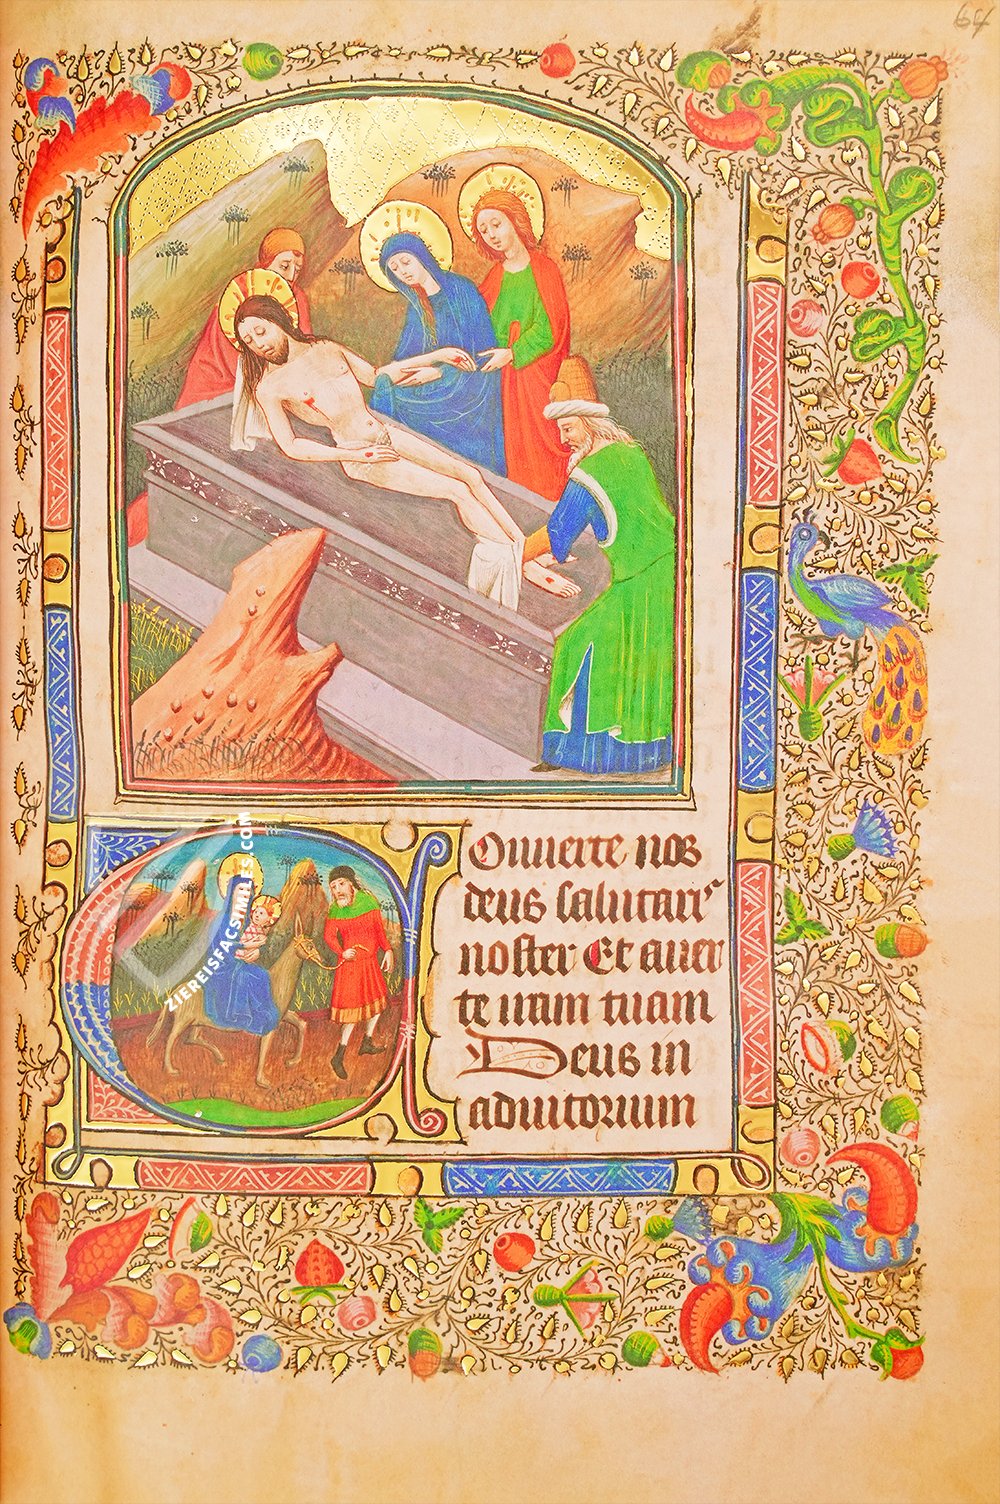 64
Conuerte nos
deus salutaris
noster Et auer
te iram tuam
Deus in
adiutorium
ZIEREISFACSIMILES.COM